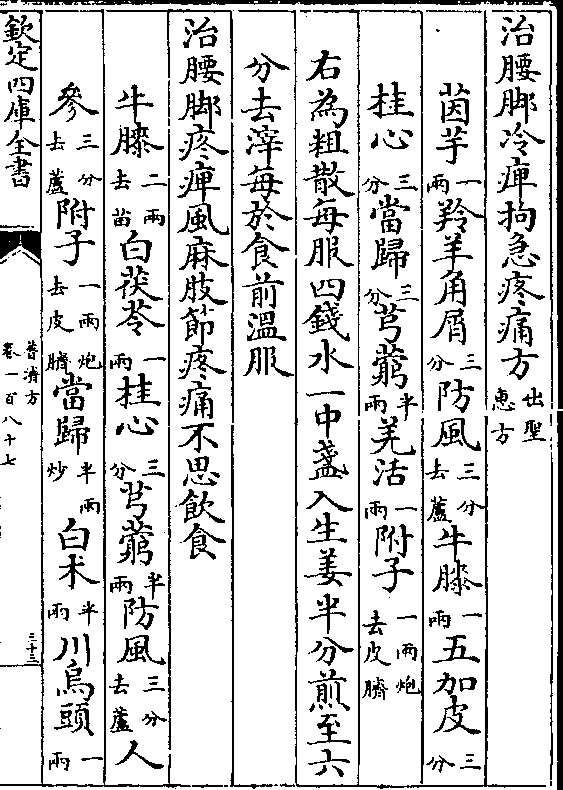 治腰脚冷痺拘急疼痛方出聖惠方
茵芋一兩羚羊角屑三分防風三分去蘆牛膝一兩五加皮三分
桂心三分當歸三分芎藭半兩羌活一兩附子一兩炮去皮臍
右為粗散每服四錢水一中盞入生姜半分煎至六
分去滓每於食前溫服
治腰脚疼痺風麻肢節疼痛不思飲食
牛膝二兩去苗白茯苓一兩桂心三分芎藭半兩防風三分去蘆人
參三分去蘆附子一兩炮去皮臍當歸半兩炒白术半兩川烏頭一兩
欽定四庫全書
普濟方
卷一百八十七
三十三